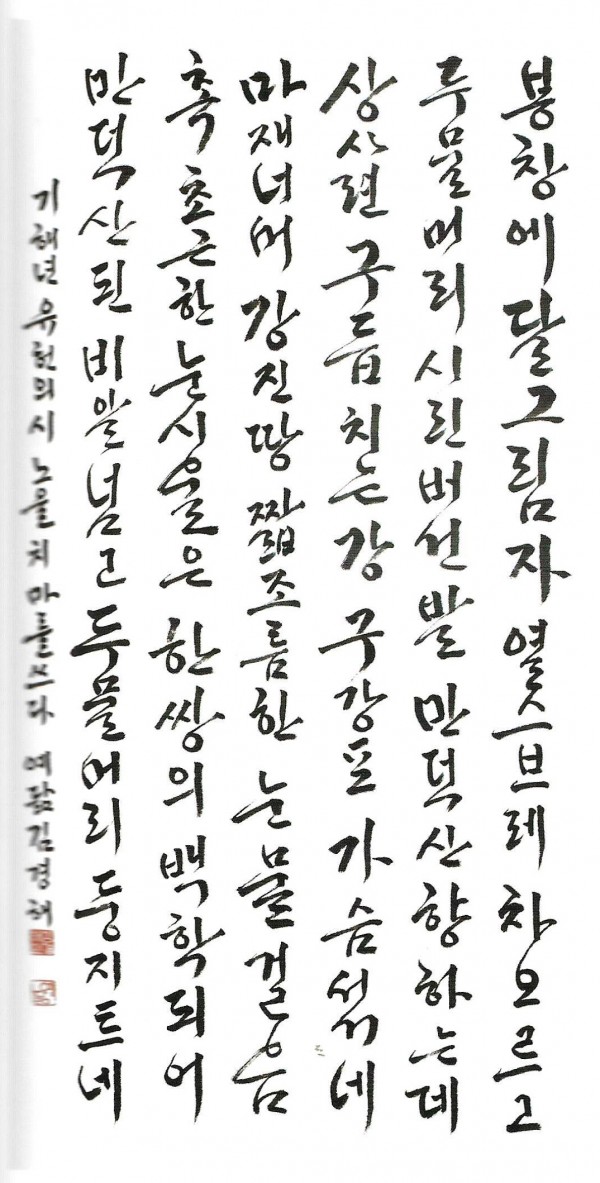 봉창에 달그림자 엷스브레 차오르고
두물머리 시린 버선발 만덕산 향하는데
상사련 구듭치는 강 구강포 가슴 섧네
마재 너머 강진땅 짭조름한 눈물걸음
촉초근한 눈시울은 한쌍의 백학되어
만덕산 된비알 넘고 두물머리 둥지트네
기해년 유헌의 시 노을치마를 쓰다 예닮 김경해